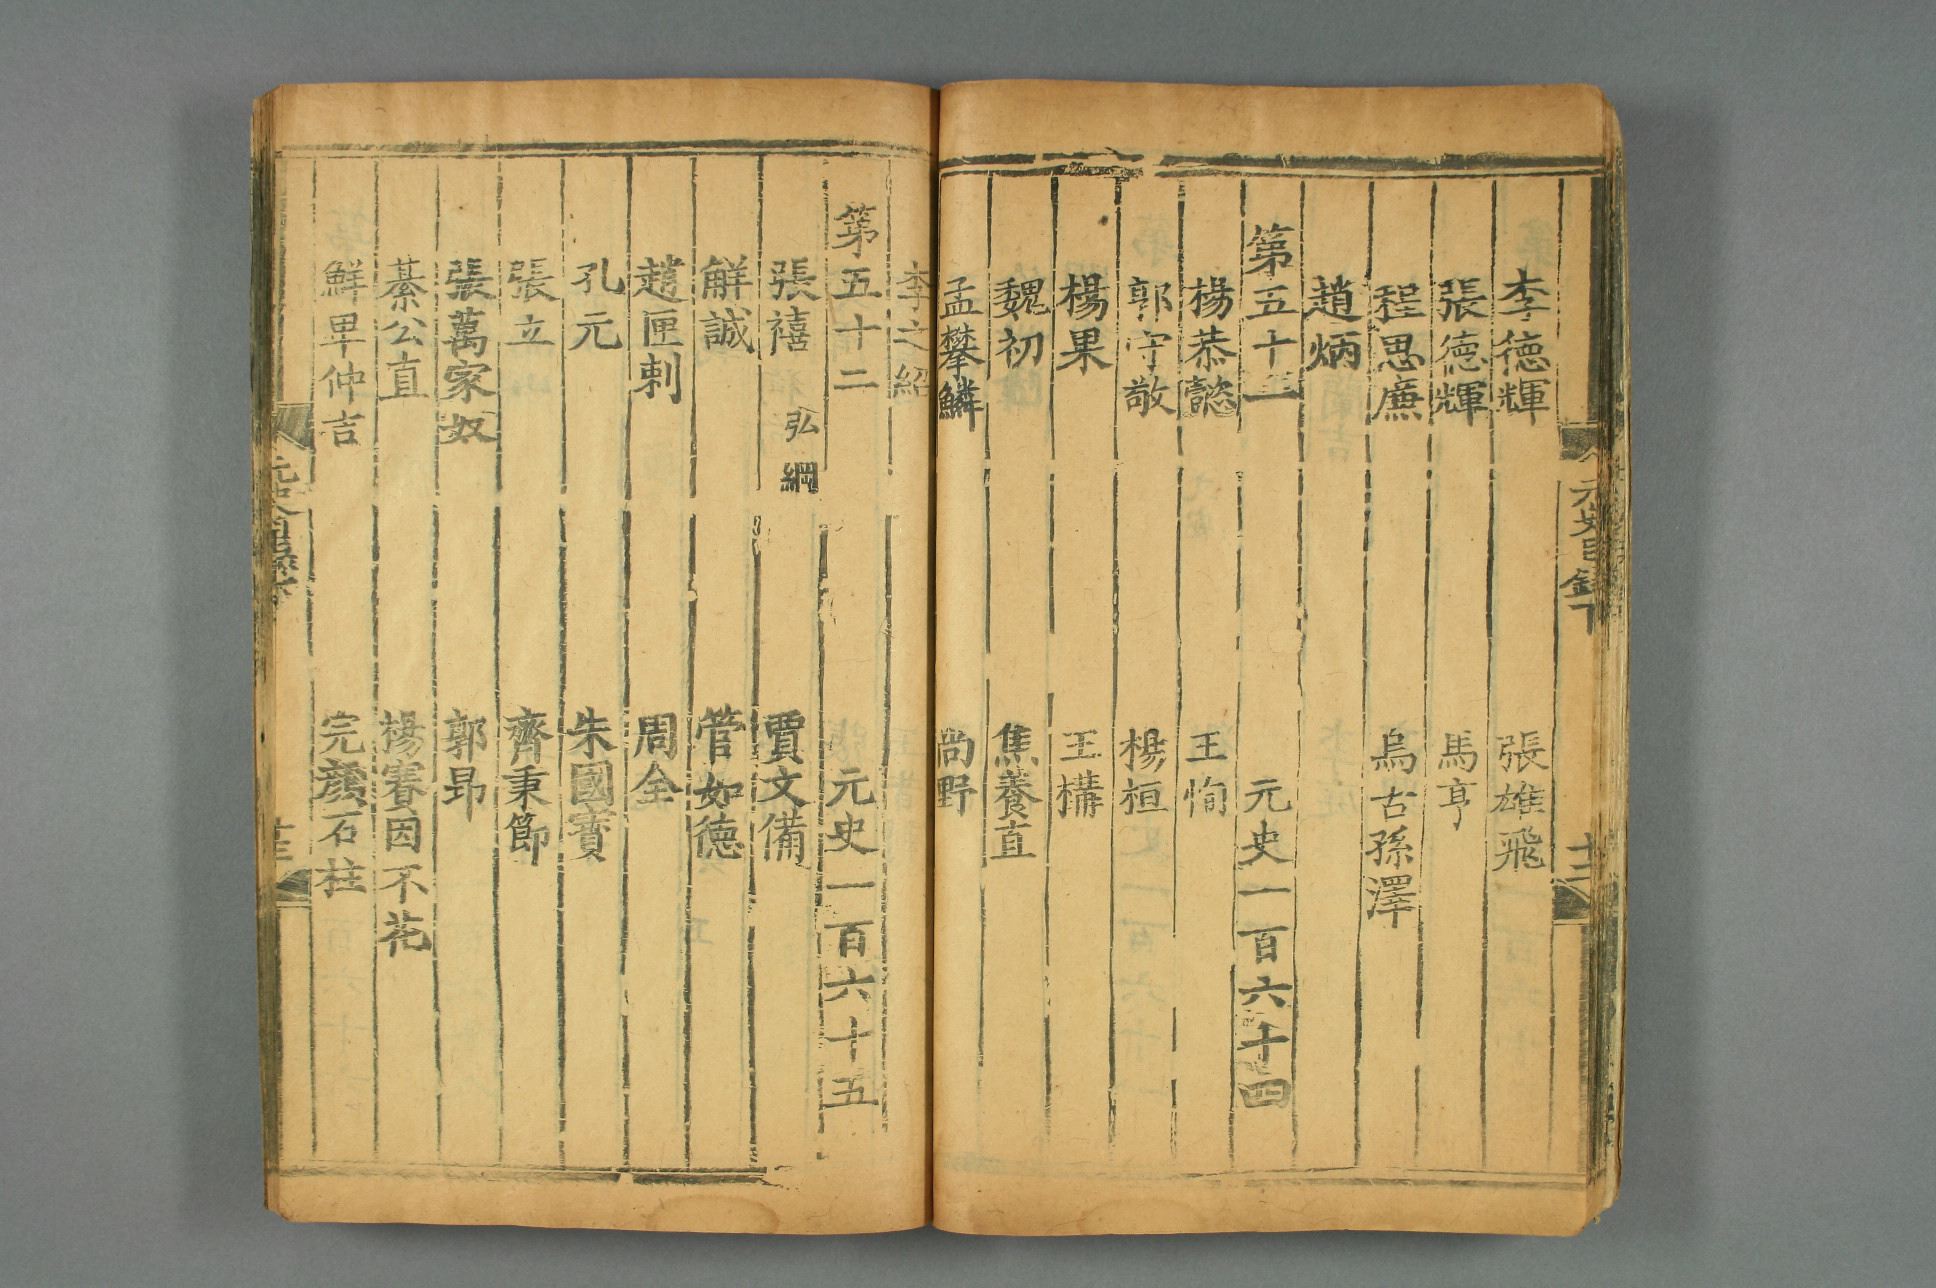 李德輝 張雄飛
張德輝 馬亨
程思廉 烏古孫澤
趙炳
第五十一 元史一百六十四
楊恭懿 王恂
郭守敬 楊桓
楊果 王構
魏初 焦養直
孟攀鱗 尚野
李之紹
第五十二 元史一百六十五
張禧 弘綱 賈文備
解誠 管如德
趙匣剌 周全
孔元 朱國寶
張立 齊秉節
張萬家奴 郭昂
綦公直 楊賽因不花
鮮卑仲吉 完顏石柱
元史目錄下
十三